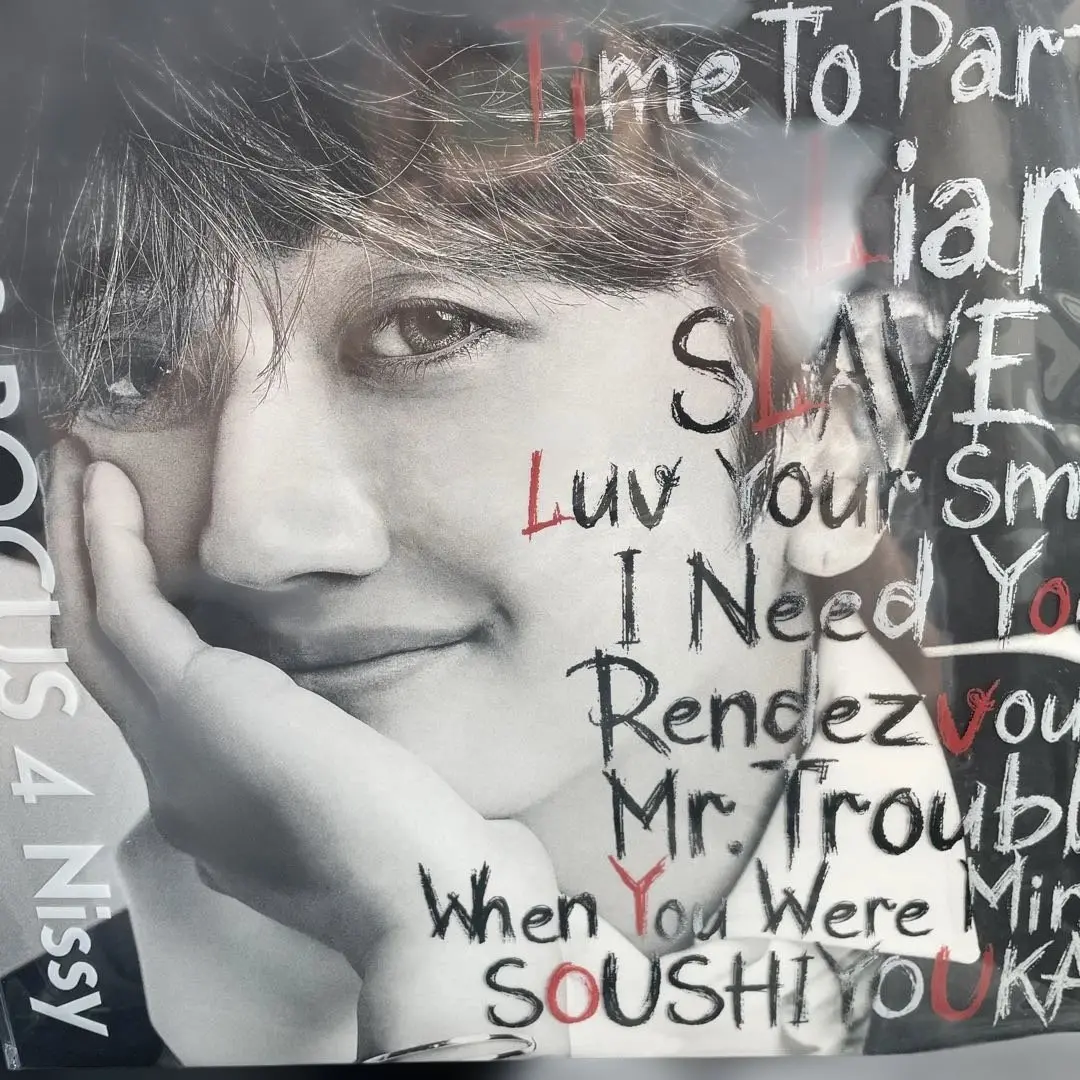 Time To Part
Liar
SLAVE
Luv Your Sm
I Need You
Rendezvou
Mr. Troubl
When You Were Min
SOUSHIYOUKA
4 Nissy